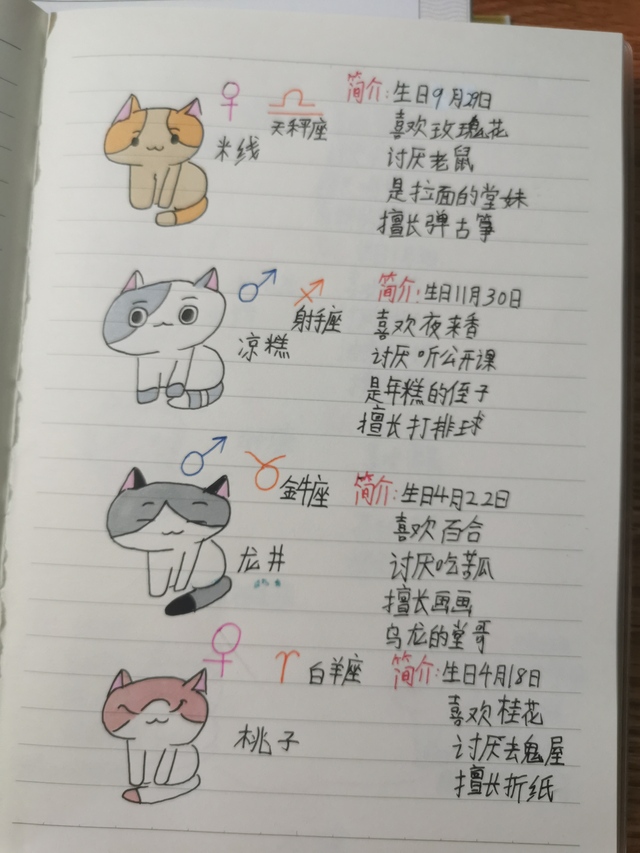 简介:生日9月29日
天秤座
米线
喜欢玫瑰花
讨厌老鼠
是拉面的堂妹
擅长弹古筝
简介:生日11月30日
射手座
凉糕
喜欢夜来香
讨厌听公开课
是年糕的侄子
擅长打排球
金牛座
简介:生日4月22日
龙井
喜欢百合
讨厌吃苦瓜
擅长画画
乌龙的堂哥
白羊座
简介:生日4月18日
桃子
喜欢桂花
讨厌去鬼屋
擅长折纸